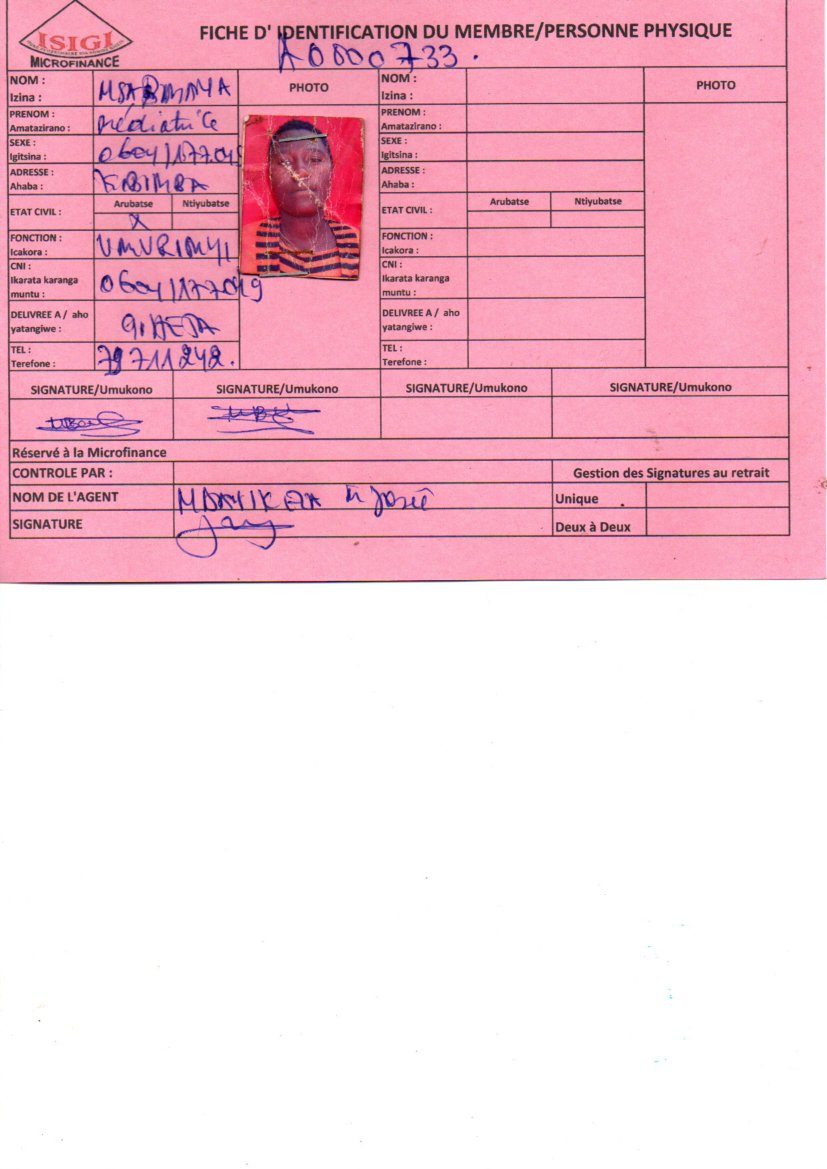 ISIGI
MICROFINANCE
FICHE D' IDENTIFICATION DU MEMBRE/PERSONNE PHYSIQUE
A0000733.
NOM :
Izina :
PHOTO
NOM :
Izina :
PHOTO
PRENOM :
Amatazirano : Médiatrice
PRENOM :
Amatazirano :
SEXE :
Igitsina :
SEXE :
Igitsina :
ADRESSE :
Ahaba : KIBIMBA
ADRESSE :
Ahaba :
ETAT CIVIL : Arubatse Ntiyubatse
X
ETAT CIVIL : Arubatse Ntiyubatse
FONCTION :
Icakora : UMURIMYI
FONCTION :
Icakora :
CNI :
Ikarata karanga
muntu : 0604/177049
CNI :
Ikarata karanga
muntu :
DELIVREE A / aho
yatangiwe : GIHETA
DELIVREE A / aho
yatangiwe :
TEL :
Terefone : 79711242.
TEL :
Terefone :
SIGNATURE/Umukono SIGNATURE/Umukono SIGNATURE/Umukono SIGNATURE/Umukono
Réservé à la Microfinance
CONTROLE PAR : Gestion des Signatures au retrait
NOM DE L'AGENT Unique
SIGNATURE Deux à Deux